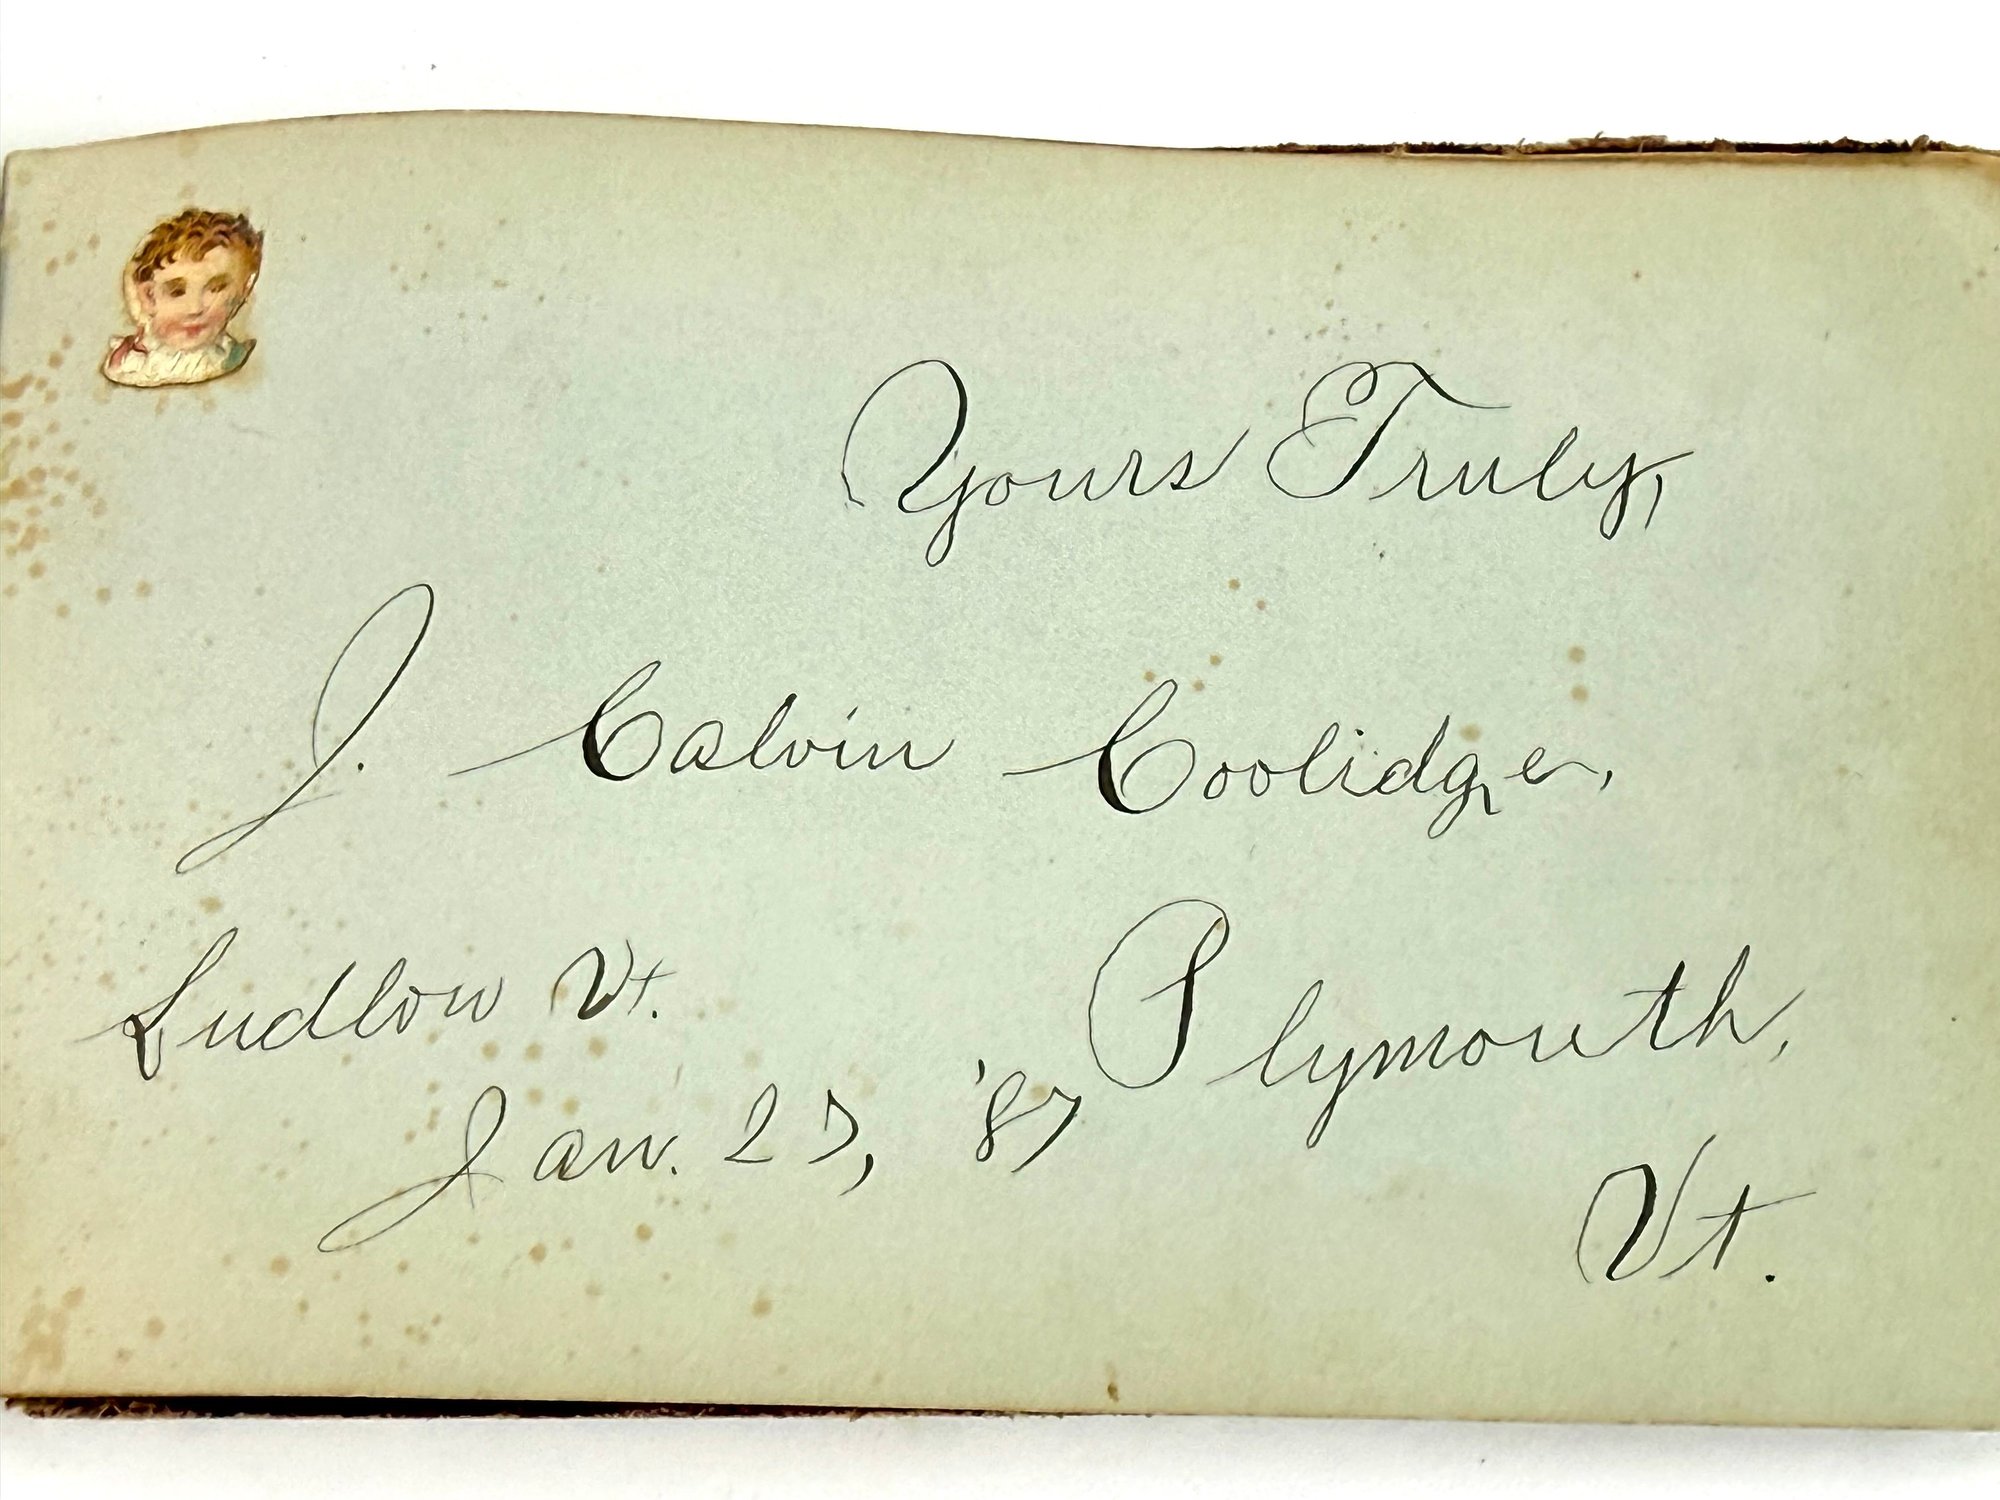 Yours Truly,
J. Calvin Coolidge,
Ludlow Vt.
Jan. 27, '87
Plymouth,
Vt.